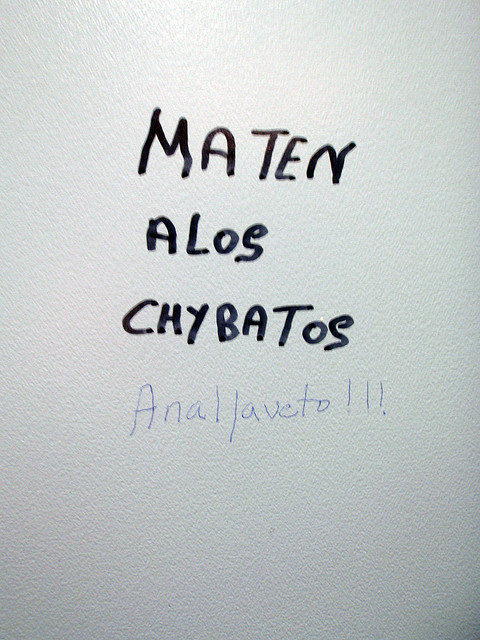 MATEN
ALOS
CHYBATOS
Analfaveto!!!